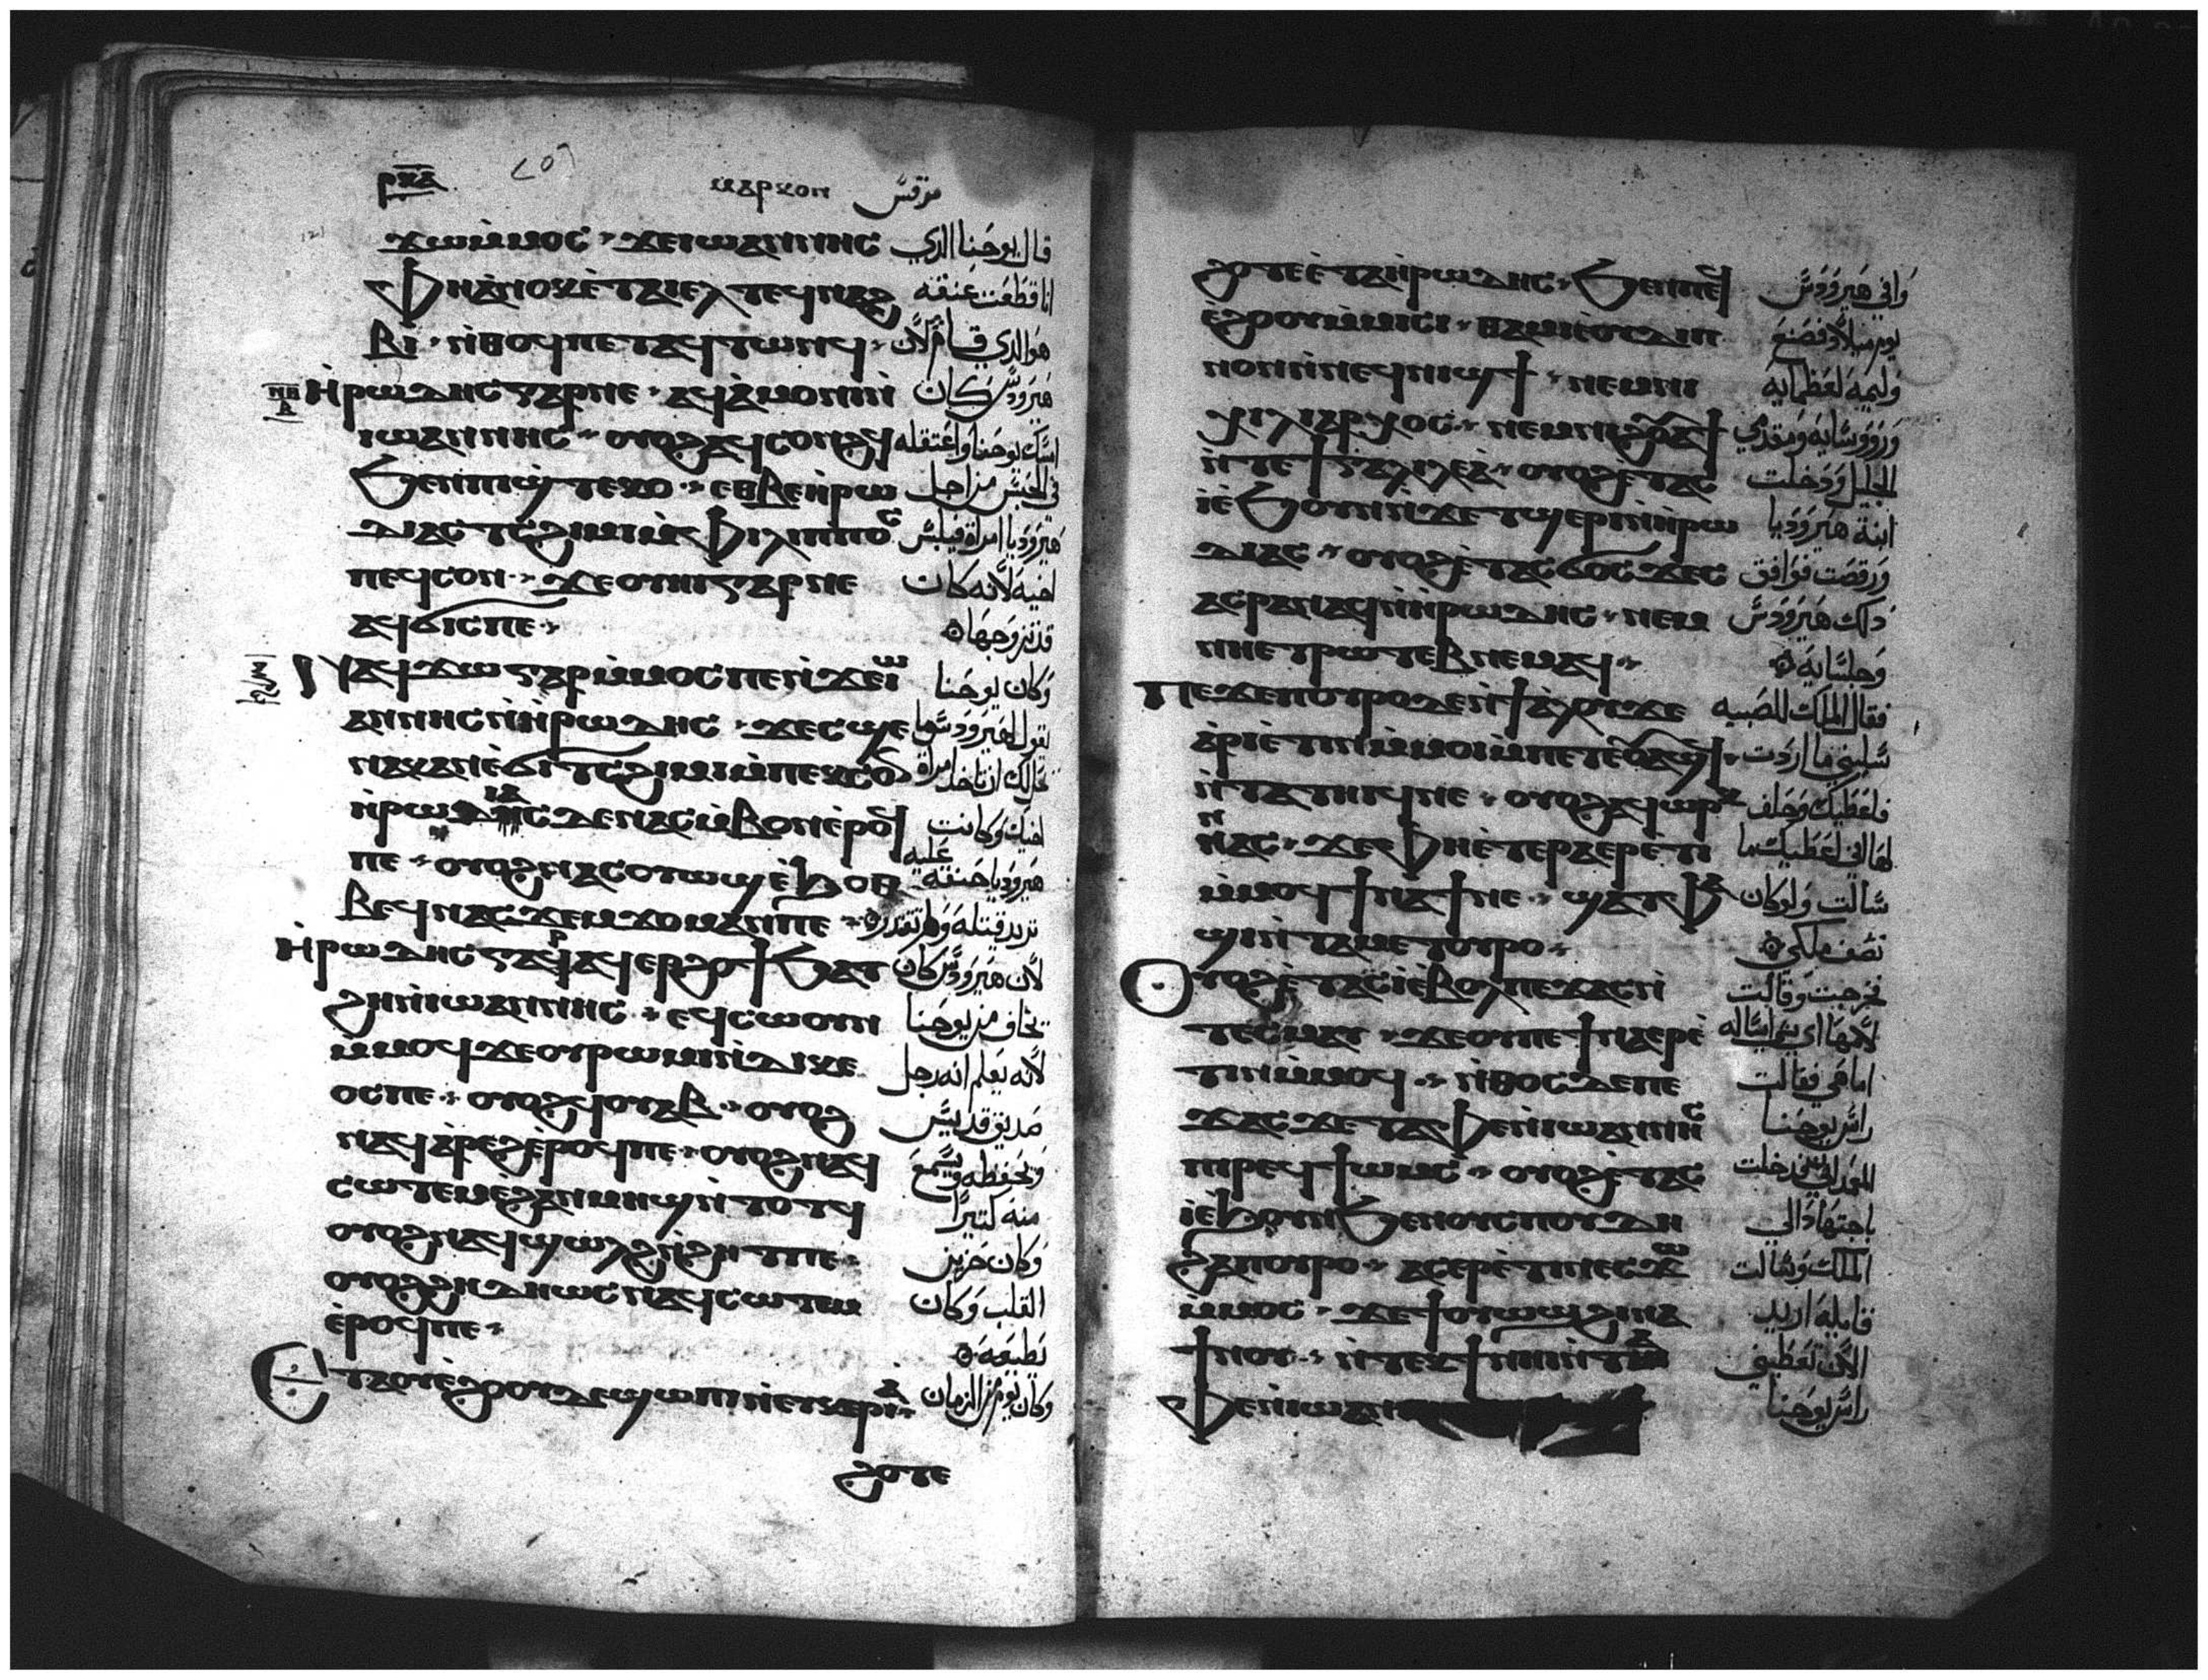 ⲣⲕⲁ ⲙⲁⲣⲕⲟⲛ مرقس
ϫⲱⲙ̀ⲙⲟⲥ ϫⲉⲓⲱⲁⲛⲛⲏⲥ قال يوحنا الدي
ⲫⲏⲁ̀ⲛⲟⲕⲉ̀ⲧⲁⲓⲉⲗⲧⲉϥⲛⲁϩ انا قطعت عنقه
ⲃⲓ ⲛ̀ⲑⲟϥⲡⲉⲧⲁϥⲧⲱⲛϥ هو الدي قام لان
ⲏ̀ⲣⲱⲇⲏⲥⲅⲁⲣⲡⲉ ⲁϥⲁ̀ⲙⲟⲛⲓⲛ̀ هيرودس كان
ⲓⲱⲁⲛⲛⲏⲥ ⲟⲩⲟϩⲁϥⲥⲟⲛϩϥ امسك يوحنا واعتقله
ϧⲉⲛⲡⲓϣⲧⲉⲕⲟ ⲉⲑⲃⲉⲏ̀ⲣⲱ في الحبس من اجل
ⲇⲓⲁⲥⲧⲥϩⲓⲙⲓⲙ̀ⲫⲓⲗⲓⲡⲡⲟⲥ هيروديا امراة فيلبس
ⲡⲉϥⲥⲟⲛ ϫⲉⲟⲩⲏⲓⲅⲁⲣⲡⲉ اخيه لانه كان
ⲁϥϭⲓⲥⲡⲉ قد تزوجها
ⲛⲁϥϫⲱⲅⲁⲣⲙ̀ⲙⲟⲥⲡⲉⲛ̀ϫⲉⲓⲱ وكان يوحنا
ⲁⲛⲛⲏⲥⲛ̀ⲏ̀ⲣⲱⲇⲏⲥ ϫⲉⲥϣⲉ يقول لهيرودس ما
ⲛⲁⲕⲁⲛⲉ̀ϭⲓⲧⲥϩⲓⲙⲓⲙ̀ⲡⲉⲕⲥⲟⲛ يحل لك ان تاخد امراة
ⲏ̀ⲣⲱⲇⲓⲁⲥⲇⲉⲛⲁⲥⲙ̀ⲃⲟⲛⲉ̀ⲣⲟϥ اخيك وكانت
ⲡⲉ ⲟⲩⲟϩⲛⲁⲥⲟⲩⲱϣⲉ̀ϧⲟⲑ هيروديا حنقه عليه
ⲃⲉϥⲛⲁⲥϫⲉⲙϫⲟⲙⲁⲛⲡⲉ تريد قتله ولم تقدر
ⲏ̀ⲣⲱⲇⲏⲥⲅⲁⲣⲁϥⲉⲣϩⲟϯϧⲁⲧ لان هيرودس كان
ϩⲏⲛ̀ⲓⲱⲁⲛⲛⲏⲥ ⲉϥⲥⲱⲟⲩⲛ يخاف من يوحنا
ⲙ̀ⲙⲟϥϫⲉⲟⲩⲣⲱⲙⲓⲛ̀ⲇⲓⲕⲉ لانه يعلم انه رجل
ⲟⲥⲡⲉ ⲟⲩⲟϩϥⲟⲩⲁⲃ ⲟⲩⲟϩ صديق قديس
ⲛⲁϥⲁ̀ⲣⲉϩⲉ̀ⲣⲟϥⲡⲉ ⲟⲩⲟϩⲛⲁϥ ويحفظه ويسمع
ⲥⲱⲧⲉⲙⲉ̀ϩⲁⲛⲙⲏϣⲛ̀ⲧⲟⲧϥ منه كتيرا
ⲟⲩⲟϩⲛⲁϥϣⲱⲗϩⲛ̀ϩⲏⲧⲡⲉ وكان حزين
ⲟⲩⲟϩϩⲏⲇⲏⲱⲥⲛⲁϥⲥⲱⲧⲉⲙ القلب وكان
ⲉ̀ⲣⲟϥⲡⲉ يطيعه
ⲉⲧⲁⲟⲩⲉ̀ϩⲟⲟⲩⲇⲉϣⲱⲡⲓⲛ̀ⲉⲩⲕⲉⲣⲓⲁ وكان يوم من الزمان
ϩⲟⲧⲉ
ϩⲟⲧⲉⲉ̀ⲧⲁⲏ̀ⲣⲱⲇⲏⲥ ϧⲉⲛⲡⲉϥ وافي هيرودس
ⲉ̀ϩⲟⲟⲩⲙ̀ⲙⲓⲥⲓ ⲑⲁⲙⲓⲉ̀ⲟⲩⲇⲓⲡ يوم ميلاده فصنع
ⲛⲟⲛⲛ̀ⲛⲉϥⲛⲓϣϯ ⲛⲉⲙⲛⲓ وليمه لعظمايه
ⲭⲓⲗⲓⲁⲣⲭⲟⲥ ⲛⲉⲙⲛⲓϩⲟⲩⲁϯ وروسايه ومقدمي
ⲛ̀ⲧⲉϯⲅⲁⲗⲓⲗⲉⲁ̀ ⲟⲩⲟϩⲉⲧⲁⲥ الجليل ودخلت
ⲓⲉ̀ϧⲟⲩⲛⲛ̀ϫⲉⲧϣⲉⲣⲓⲛ̀ⲏ̀ⲣⲱ ابنة هيروديا
ⲇⲓⲁⲥ ⲟⲩⲟϩⲉ̀ⲧⲁⲥϭⲟⲥϫⲉⲥ ورقصت فوافق
ⲁⲥⲣⲁⲛⲁϥⲛ̀ⲏ̀ⲣⲱⲇⲏⲥ ⲛⲉⲙ دلك هيرودس
ⲛⲏⲉⲧⲣⲱⲧⲉⲃⲛⲉⲙⲁϥ وجلسايه
ⲡⲉϫⲉⲡⲟⲩⲣⲟⲇⲉⲛ̀ϯⲁ̀ⲗⲟⲩϫⲉ فقال الملك للصبيه
ⲁ̀ⲣⲓⲉ̀ⲧⲓⲛⲙ̀ⲙⲟⲓⲙ̀ⲡⲉⲧⲉ̀ⲟⲩⲁϣϥ سليني ما اردت
ⲛ̀ⲧⲁⲧⲏⲓϥⲛⲉ ⲟⲩⲟϩⲁϥⲱⲣⲕ فاعطيك وحلف
ⲛⲁⲥ ϫⲉⲫⲏⲉ̀ⲧⲉⲣⲁⲉⲣⲉ̀ⲧⲓⲛ لها اني اعطيك ما
ⲙ̀ⲙⲟϥϯⲛⲁϯⲛⲉ ϣⲁⲧⲫⲁ سالت ولو كان
ϣⲓⲛ̀ⲧⲁⲙⲉⲧⲟⲩⲣⲟ نصف ملكي
ⲟⲩⲟϩⲉ̀ⲧⲁⲥⲓⲉ̀ⲃⲟⲗⲡⲉϫⲁⲥⲛ̀ فخرجت وقالت
ⲧⲉⲥⲙⲁⲩ ϫⲉⲟⲩⲡⲉϯⲛⲁⲉⲣⲉ̀ لامها اي شي اساله
ⲧⲓⲛⲙ̀ⲙⲟϥ ⲛ̀ⲑⲟⲥⲇⲉⲡⲉ اما هي فقالت
ϫⲁⲥϫⲉⲧⲁⲫⲉⲛ̀ⲓⲱⲁⲛⲛⲏⲥ راس يوحنا
ⲡⲓⲣⲉϥϯⲱⲙⲥ ⲟⲩⲟϩⲉ̀ⲧⲁⲥ
ⲓⲉ̀ϧⲟⲩⲛϧⲉⲛⲟⲩⲥⲡⲟⲩⲇⲏ باجتهاد الي
ϩⲁⲡⲟⲩⲣⲟ ⲁⲥⲉⲣⲉ̀ⲧⲓⲛⲉⲥϫⲱ الملك وسالت
ⲙ̀ⲙⲟⲥ ϫⲉϯⲟⲩⲱϣϩⲓⲛⲁ قايله اريد
ϯⲛⲟⲩ ⲛ̀ⲧⲉⲕϯⲛⲏⲓⲛ̀ⲧⲁ الان تعطيني
ⲫⲉⲛ̀ⲓⲱⲁⲛ راس يوحنا